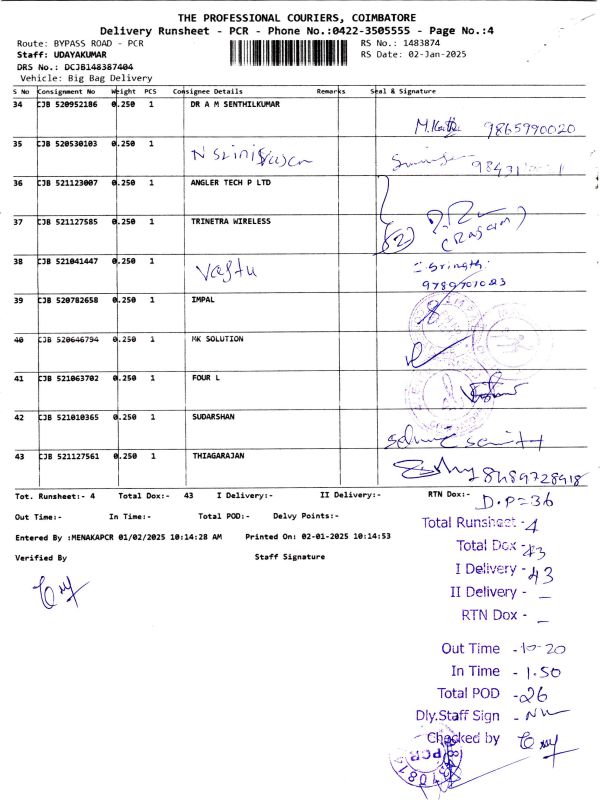 THE PROFESSIONAL COURIERS, COIMBATORE
Delivery Runsheet - PCR - Phone No.:0422-3505555 - Page No.:4
Route: BYPASS ROAD - PCR RS No.: 1483874
Staff: UDAYAKUMAR RS Date: 02-Jan-2025
DRS No.: DCJB148387404
Vehicle: Big Bag Delivery
S No Consignment No Weight PCS Consignee Details Remarks Seal & Signature
34 CJB 520952186 0.250 1 DR A M SENTHILKUMAR
9865990020
35 CJB 520530103 0.250 1
36 CJB 521123007 0.250 1 ANGLER TECH P LTD
37 CJB 521127585 0.250 1 TRINETRA WIRELESS
(2)
38 CJB 521041447 0.250 1
39 CJB 520782658 0.250 1 IMPAL
40 CJB 520646794 0.250 1 MK SOLUTION
41 CJB 521063702 0.250 1 FOUR L
42 CJB 521010365 0.250 1 SUDARSHAN
43 CJB 521127561 0.250 1 THIAGARAJAN
8489728918
Tot. Runsheet:- 4 Total Dox:- 43 I Delivery:- II Delivery:- RTN Dox:-
D.P=36
Out Time:- In Time:- Total POD:- Delvy Points:-
Entered By :MENAKAPCR 01/02/2025 10:14:28 AM Printed On: 02-01-2025 10:14:53
Verified By Staff Signature
Total Runsheet - 4
Total Dox - 43
I Delivery - 43
II Delivery - -
RTN Dox - -
Out Time - 10-20
In Time - 1.50
Total POD - 26
Dly.Staff Sign -
Checked by
PCR